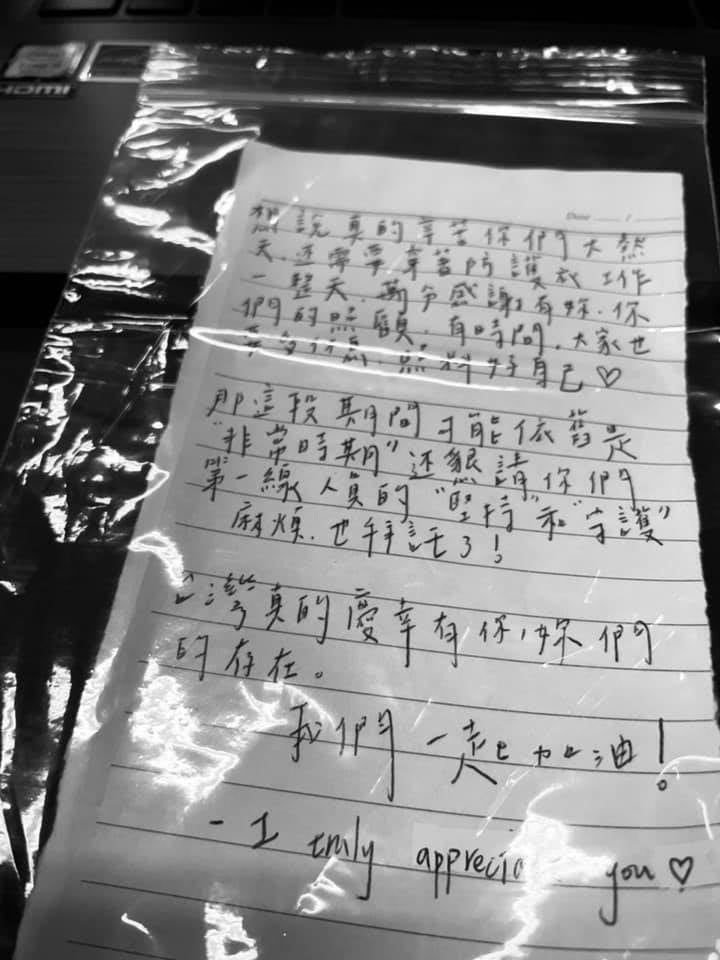 HOMI
Date
想說真的辛苦你們大熱
天.還需要穿著防護衣工作
一整天.萬分感謝有妳.你
們的照顧.有時間.大家也
要多休息.照料好自己♡
那這段期間可能依舊是
“非常時期”還懇請你們
第一線人員的“堅持”和“守護”
麻煩.也拜託了!
台灣真的慶幸有你,妳們
的存在。
我們一起加油!
- I truly apprecia you ♡